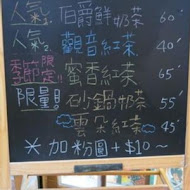 人氣1. 伯爵鮮奶茶 60
人氣2. 觀音紅茶 40
季節限定!! 蜜香紅茶 65
限量!! 砂鍋奶茶 55
雲朵紅茶 45
※加粉圓+$10~